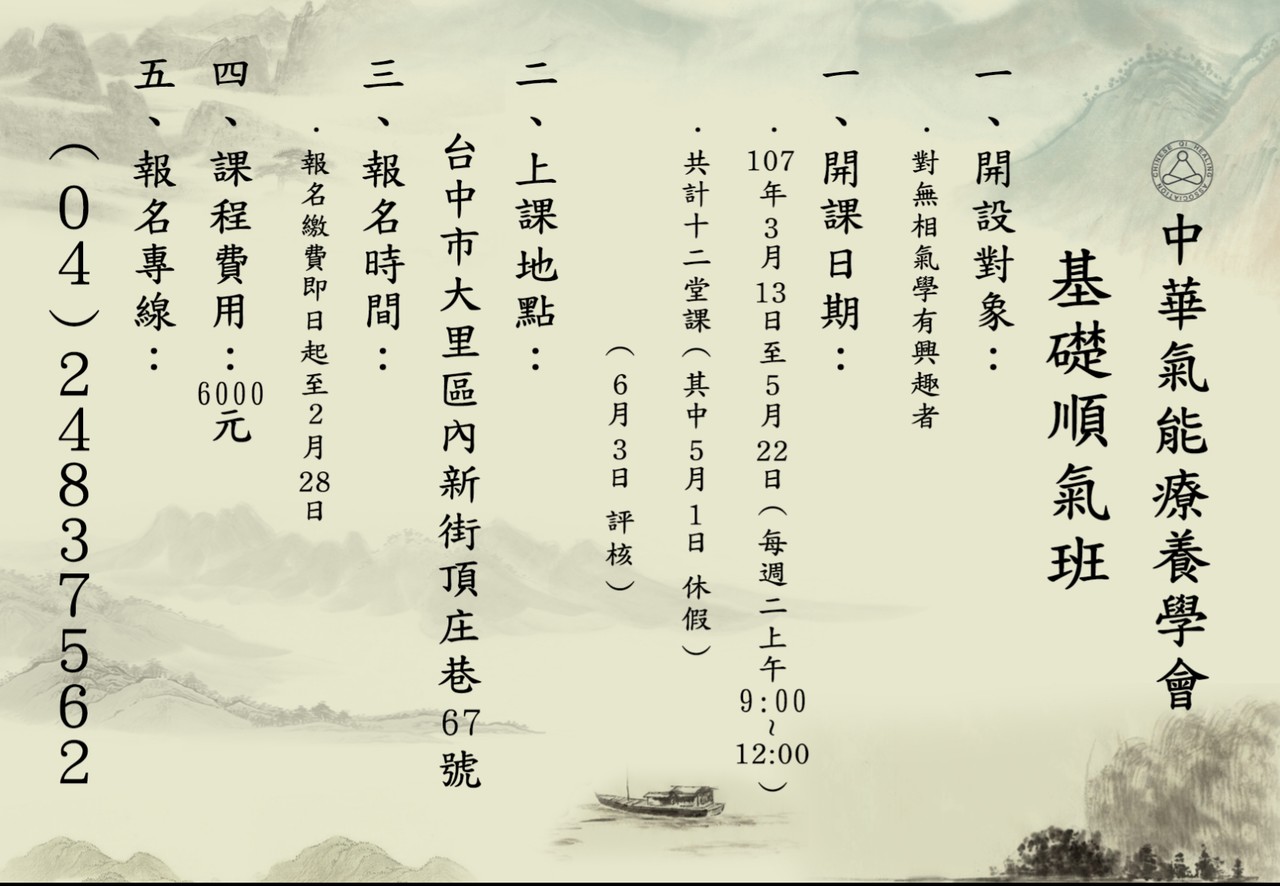 CHINESE QI HEALING ASSOCIATION
中華氣能療養學會
基礎順氣班
一、開設對象：
．對無相氣學有興趣者
一、開課日期：
．107年3月13日至5月22日（每週二上午9:00~12:00）
．共計十二堂課（其中5月1日 休假）
（6月3日 評核）
二、上課地點：
台中市大里區內新街頂庄巷67號
三、報名時間：
．報名繳費即日起至2月28日
四、課程費用：6000元
五、報名專線：
（04）24837562